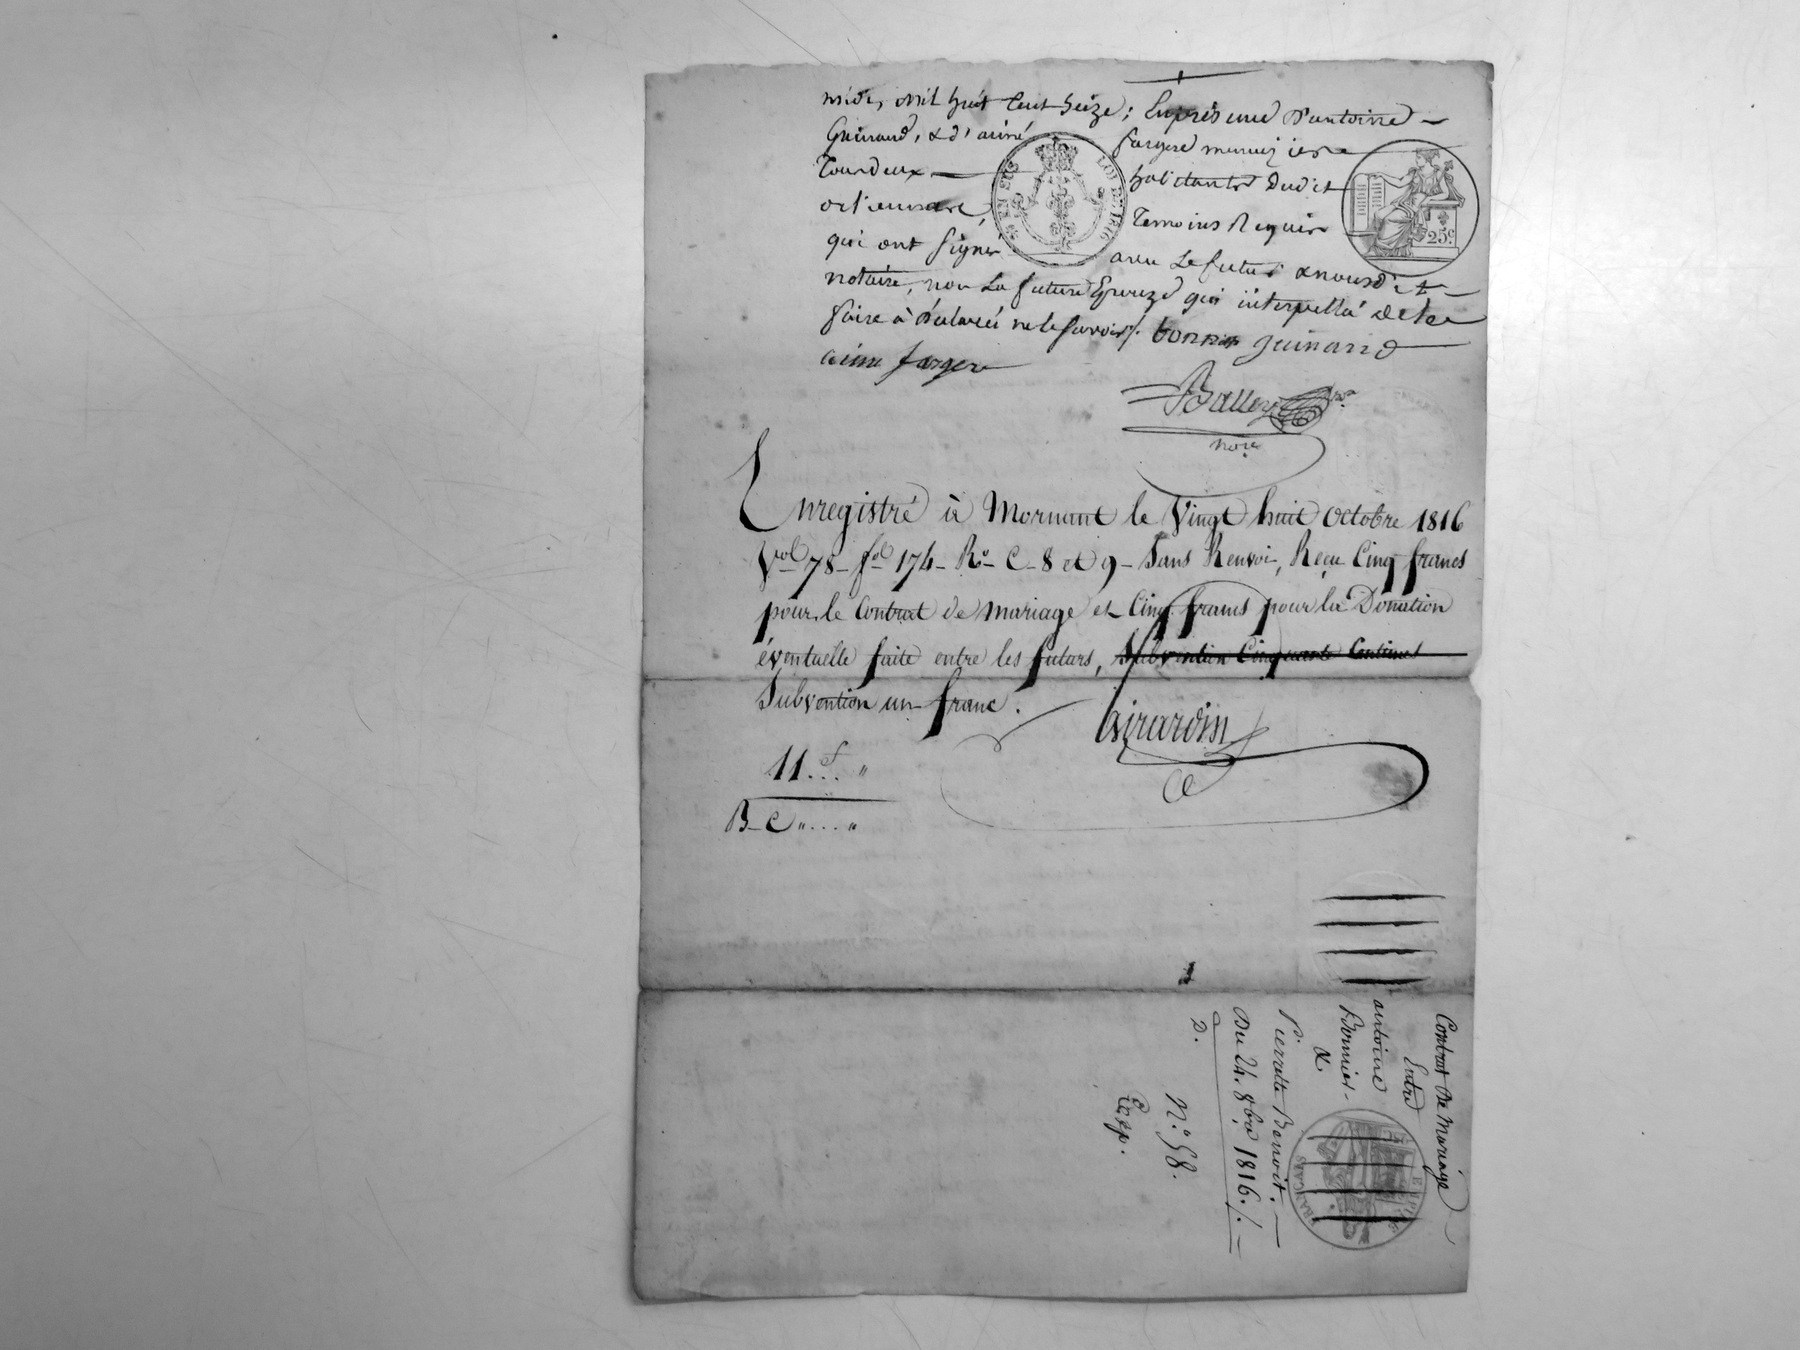 midi, mil huit cent Seize; En présence d'antoine
Guinand, & d'aimé fargere menuiziers
Tourdeux habitants dudit
orlienas, Temoins Requis
qui ont Signé avec Le futur & nousdit
notaire, non La future Epouze qui interpellée de le
faire à déclaré ne le savoir /. bonnier guinand
aimé fargere
Balley
nore
Enregistré à Mornant le Vingt huit Octobre 1816
Vol 78 fol 174 Ro C 8 et 9 Sans Renvoi, Reçu Cinq francs
pour le Contrat de mariage et Cinq francs pour la Donation
éventuelle faite entre les futurs, Subvention Cinquante Centimes
Subvention un franc.
Girardin
11.f... "
B C "... "
EN SUS
LOI DE 1816
25 c
Contrat de Mariage
Entre
antoine
Bonnier
&
Pierrette Benoit.
Du 24. 8bre 1816 /.
2.
N.o 58.
Exp.